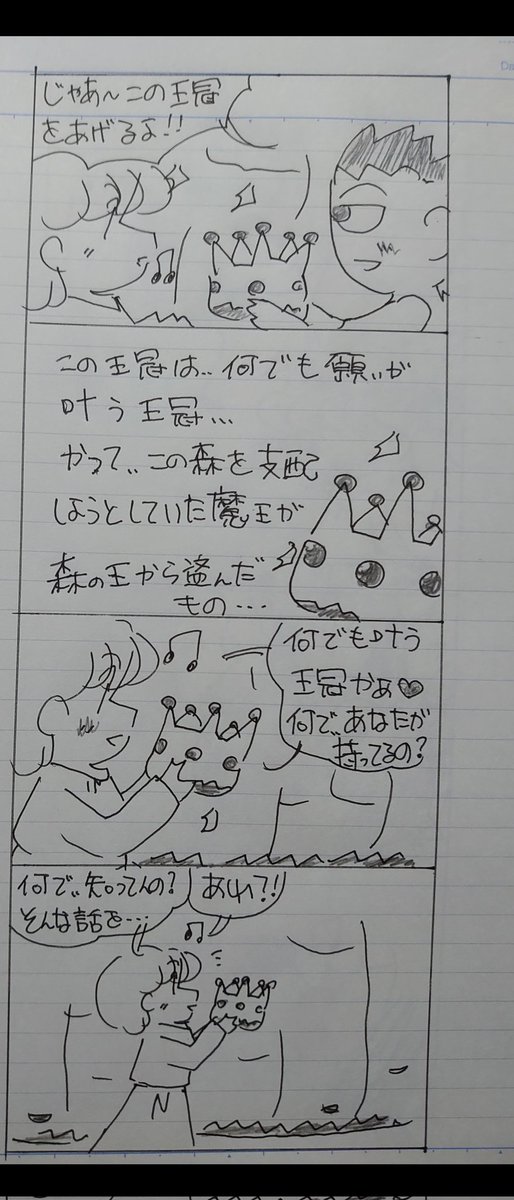 じゃあ〜この王冠
をあげるよ!!
この王冠は‥何でも願いが
叶う王冠…
かつて‥この森を支配
しようとしていた魔王が
森の王から盗んだ
もの…
何でも叶う
王冠かぁ♡
何で‥あなたが
持ってるの?
何で‥知ってんの?
そんな話を…
あれ?!
N